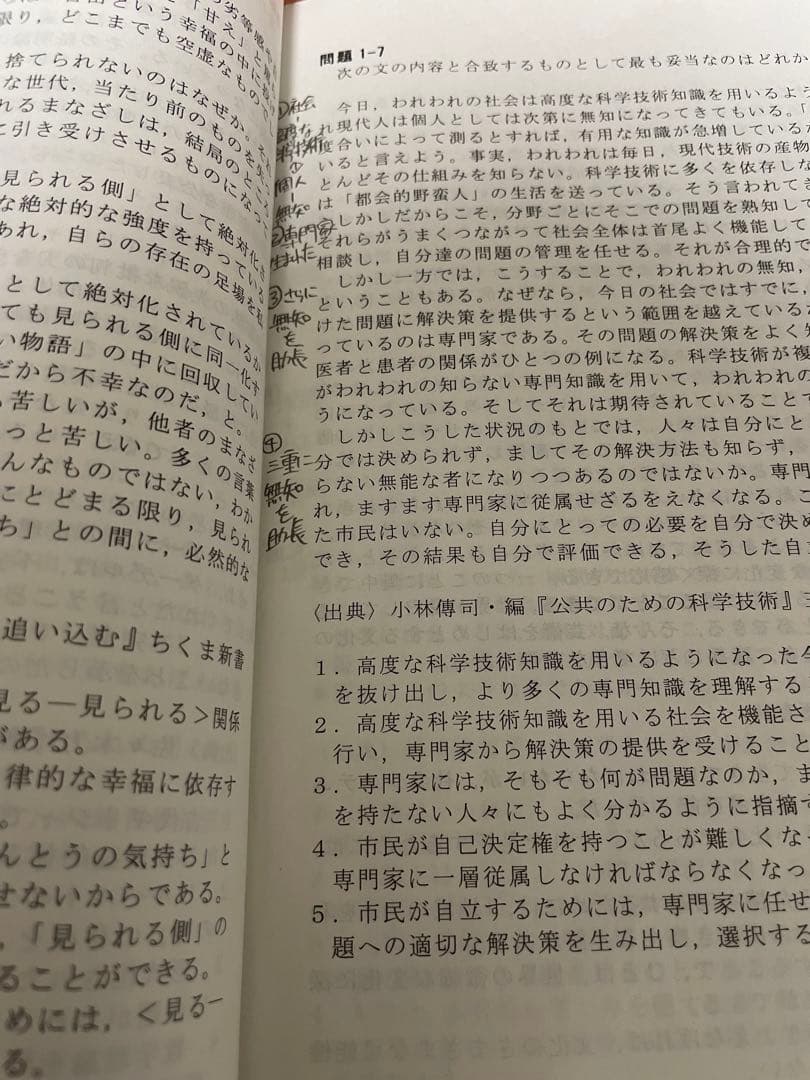 捨てられないのはなぜか。
な世代，当たり前のものを
れるまなざしは，結局のところ
に引き受けさせるものになって
見られる側」として絶対化
な絶対的な強度を持っている
あれ，自らの存在の足場を
として絶対化されているか
ても見られる側に同一化す
い物語」の中に回収してい
だから不幸なのだ，と。
苦しいが，他者のまなざ
っと苦しい。多くの言葉
んなものではない，わか
ことどまる限り，見られ
ち」との間に，必然的な
追い込む』ちくま新書
見る―見られる＞関係
がある。
律的な幸福に依存す
。
んとうの気持ち」と
せないからである。
，「見られる側」の
ることができる。
めには，＜見る―
る。
問題 1-7
次の文の内容と合致するものとして最も妥当なのはどれか
今日，われわれの社会は高度な科学技術知識を用いるよう
現代人は個人としては次第に無知になってきてもいる。「
度合いによって測るとすれば，有用な知識が急増している
いると言えよう。事実，われわれは毎日，現代技術の産物
とんどその仕組みを知らない。科学技術に多くを依存しな
は「都会的野蛮人」の生活を送っている。そう言われてき
しかしだからこそ，分野ごとにそこでの問題を熟知して
それらがうまくつながって社会全体は首尾よく機能して
相談し，自分達の問題の管理を任せる。それが合理的で
しかし一方では，こうすることで，われわれの無知，
ということもある。なぜなら，今日の社会ではすでに，
けた問題に解決策を提供するという範囲を越えているか
っているのは専門家である。その問題の解決策をよく知
医者と患者の関係がひとつの例になる。科学技術が複
がわれわれの知らない専門知識を用いて，われわれの
うになっている。そしてそれは期待されていることで
しかしこうした状況のもとでは，人々は自分にと
分では決められず，ましてその解決方法も知らず，
らない無能な者になりつつあるのではないか。専門
れ，ますます専門家に従属せざるをえなくなる。こ
た市民はいない。自分にとっての必要を自分で決め
でき，その結果も自分で評価できる，そうした自立
〈出典〉小林傳司・編『公共のための科学技術』玉
1．高度な科学技術知識を用いるようになった今
を抜け出し，より多くの専門知識を理解する
2．高度な科学技術知識を用いる社会を機能さ
行い，専門家から解決策の提供を受けること
3．専門家には，そもそも何が問題なのか，ま
を持たない人々にもよく分かるように指摘す
4．市民が自己決定権を持つことが難しくな
専門家に一層従属しなければならなくなっ
5．市民が自立するためには，専門家に任せ
題への適切な解決策を生み出し，選択する
①社会
科学技術
個人
無知
②専門家
生まれた
③さらに
無知
を
助長
④
三重に
無知
を
助長